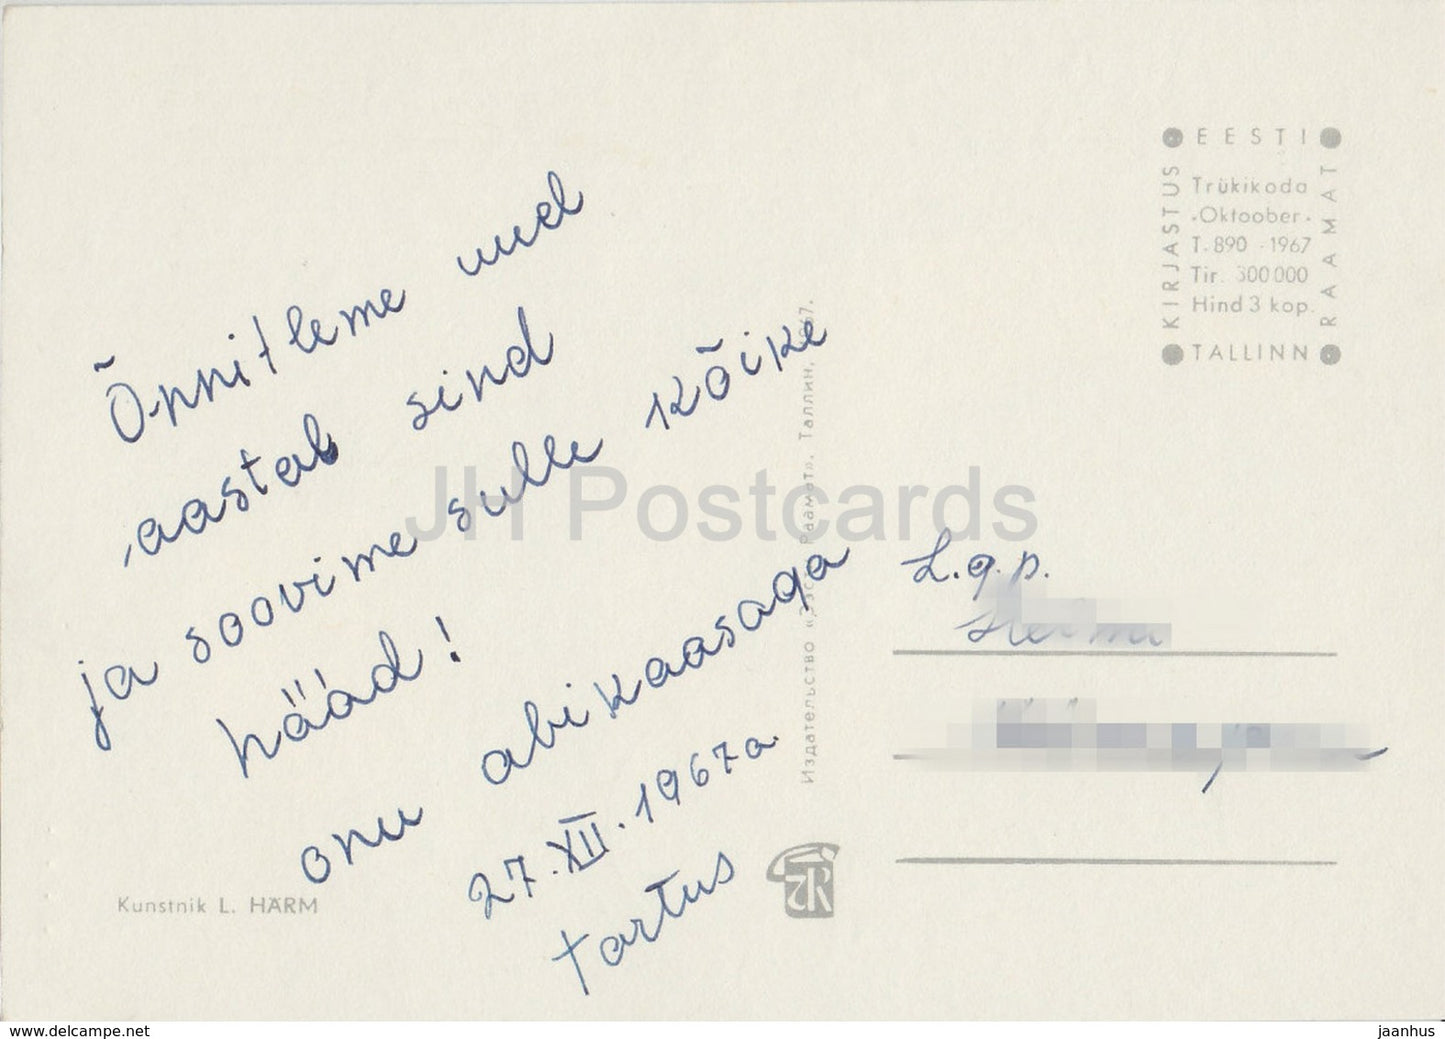 Õnnitleme uuel
aastal sind
ja soovime sulle kõike
hääd!
onu abikaasaga
27.XII.1967a.
Tartus
L.g.p.
EESTI
KIRJASTUS
RAAMAT
TALLINN
Trükikoda
«Oktoober»
T. 890 - 1967
Tir. 300 000
Hind 3 kop.
Издательство «Ээсти Раамат». Таллин, 1967.
Kunstnik L. HÄRM
JH Postcards
www.delcampe.net
jaanhus